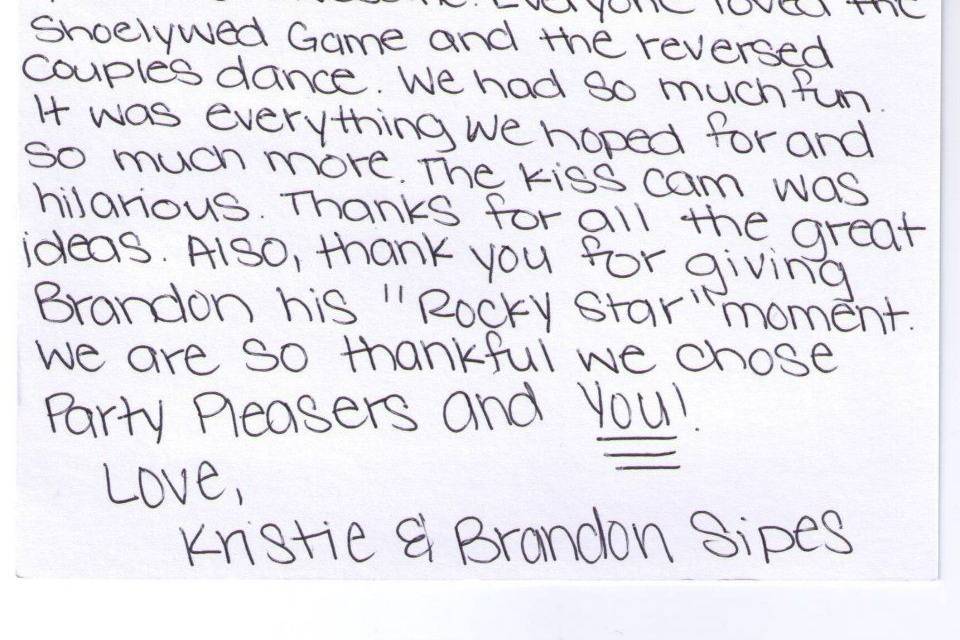 Everyone loved the
Shoelywed Game and the reversed
Couples dance. We had so much fun.
It was everything we hoped for and
so much more. The kiss cam was
hilarious. Thanks for all the great
ideas. Also, thank you for giving
Brandon his "Rocky Star" moment.
We are so thankful we chose
Party Pleasers and you!
Love,
Kristie & Brandon Sipes